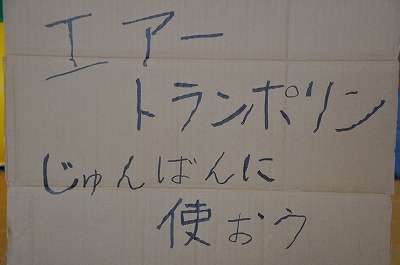 エアー
トランポリン
じゅんばんに
使おう